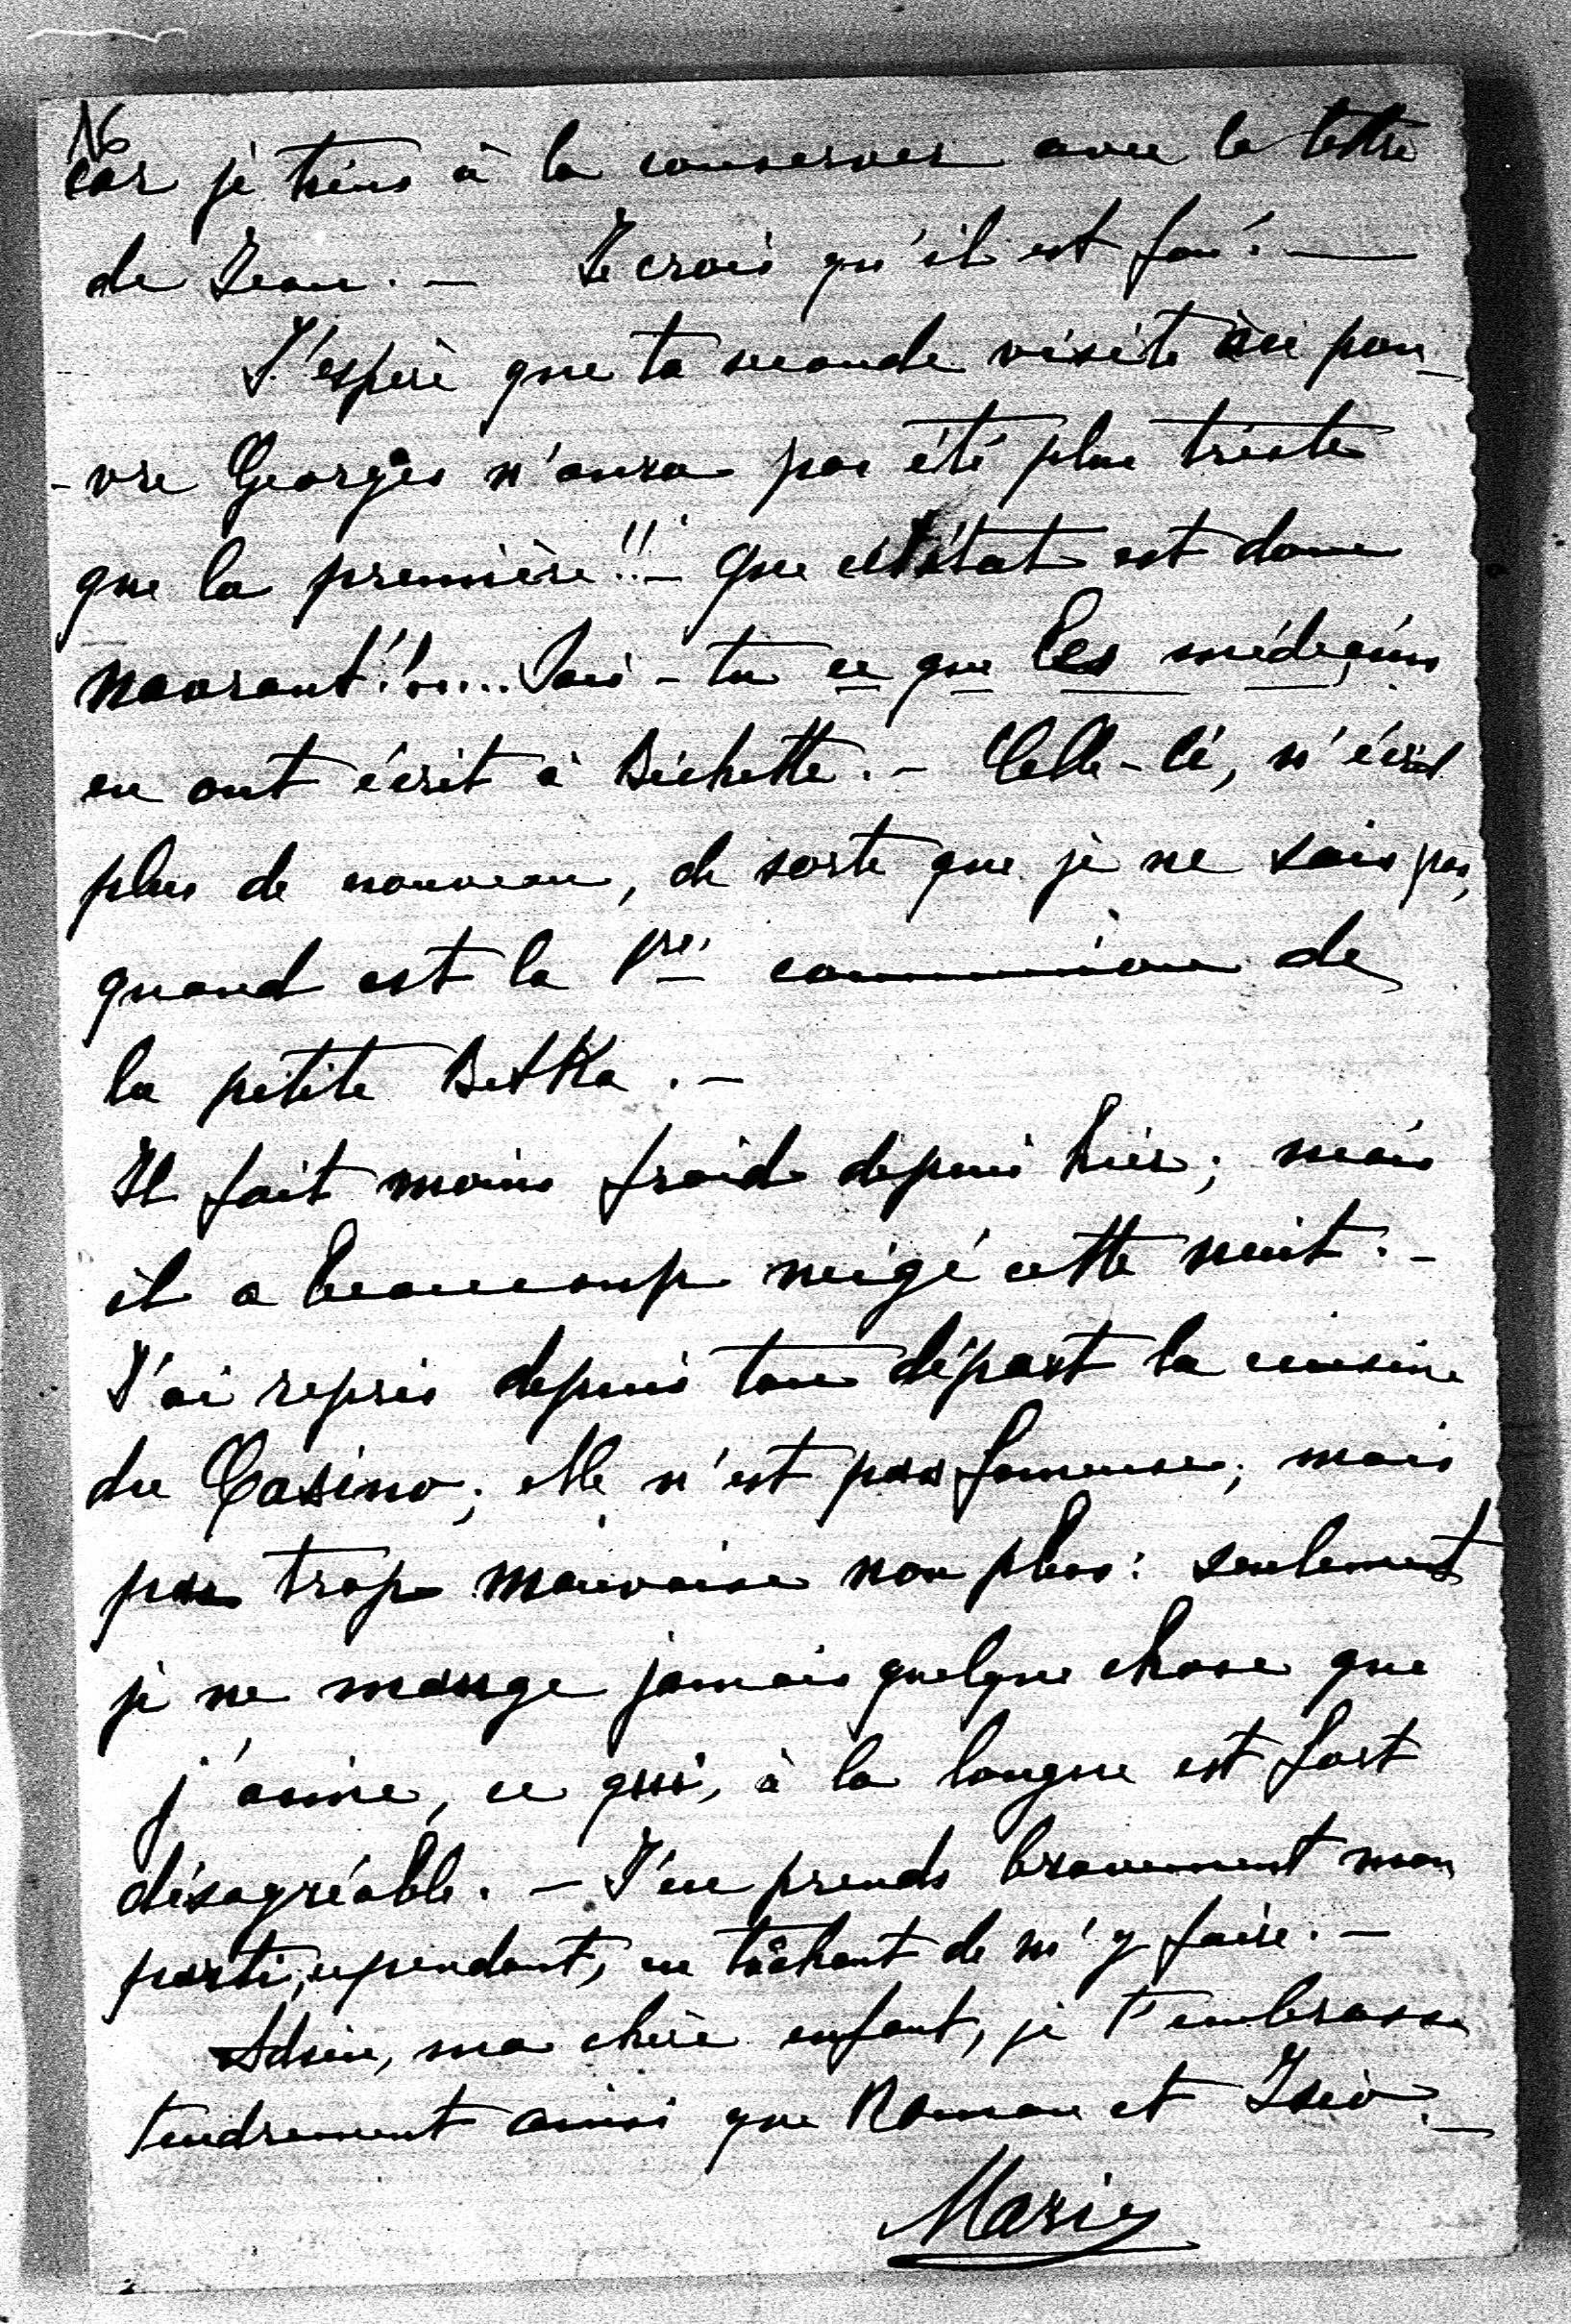 16
car je tiens à la conserver avec la lettre
de Jean. — Je crois qu'il est fou! —
J'espère que ta seconde visite au pau-
-vre Georges n'aura pas été plus triste
que la première!! — Que cet état est donc
navrant!!.... Sais-tu ce que les médecins
en ont écrit à Bichette. — Celle-ci, n'écrit
plus de nouveau, de sorte que je ne sais pas,
quand est la 1re communion de
la petite Betka. —
Il fait moins froid depuis hier; mais
il a beaucoup neigé cette nuit. —
J'ai repris depuis ton départ la cuisine
du Casino; elle n'est pas fameuse; mais
pas trop mauvaise non plus: seulement
je ne mange jamais quelque chose que
j'aime, ce qui, à la longue est fort
désagréable. — J'en prends bravement mon
parti, cependant, en tâchant de m'y faire. —
Adieu, ma chère enfant, je t'embrasse
tendrement ainsi que Roman et Isio. —
Marie